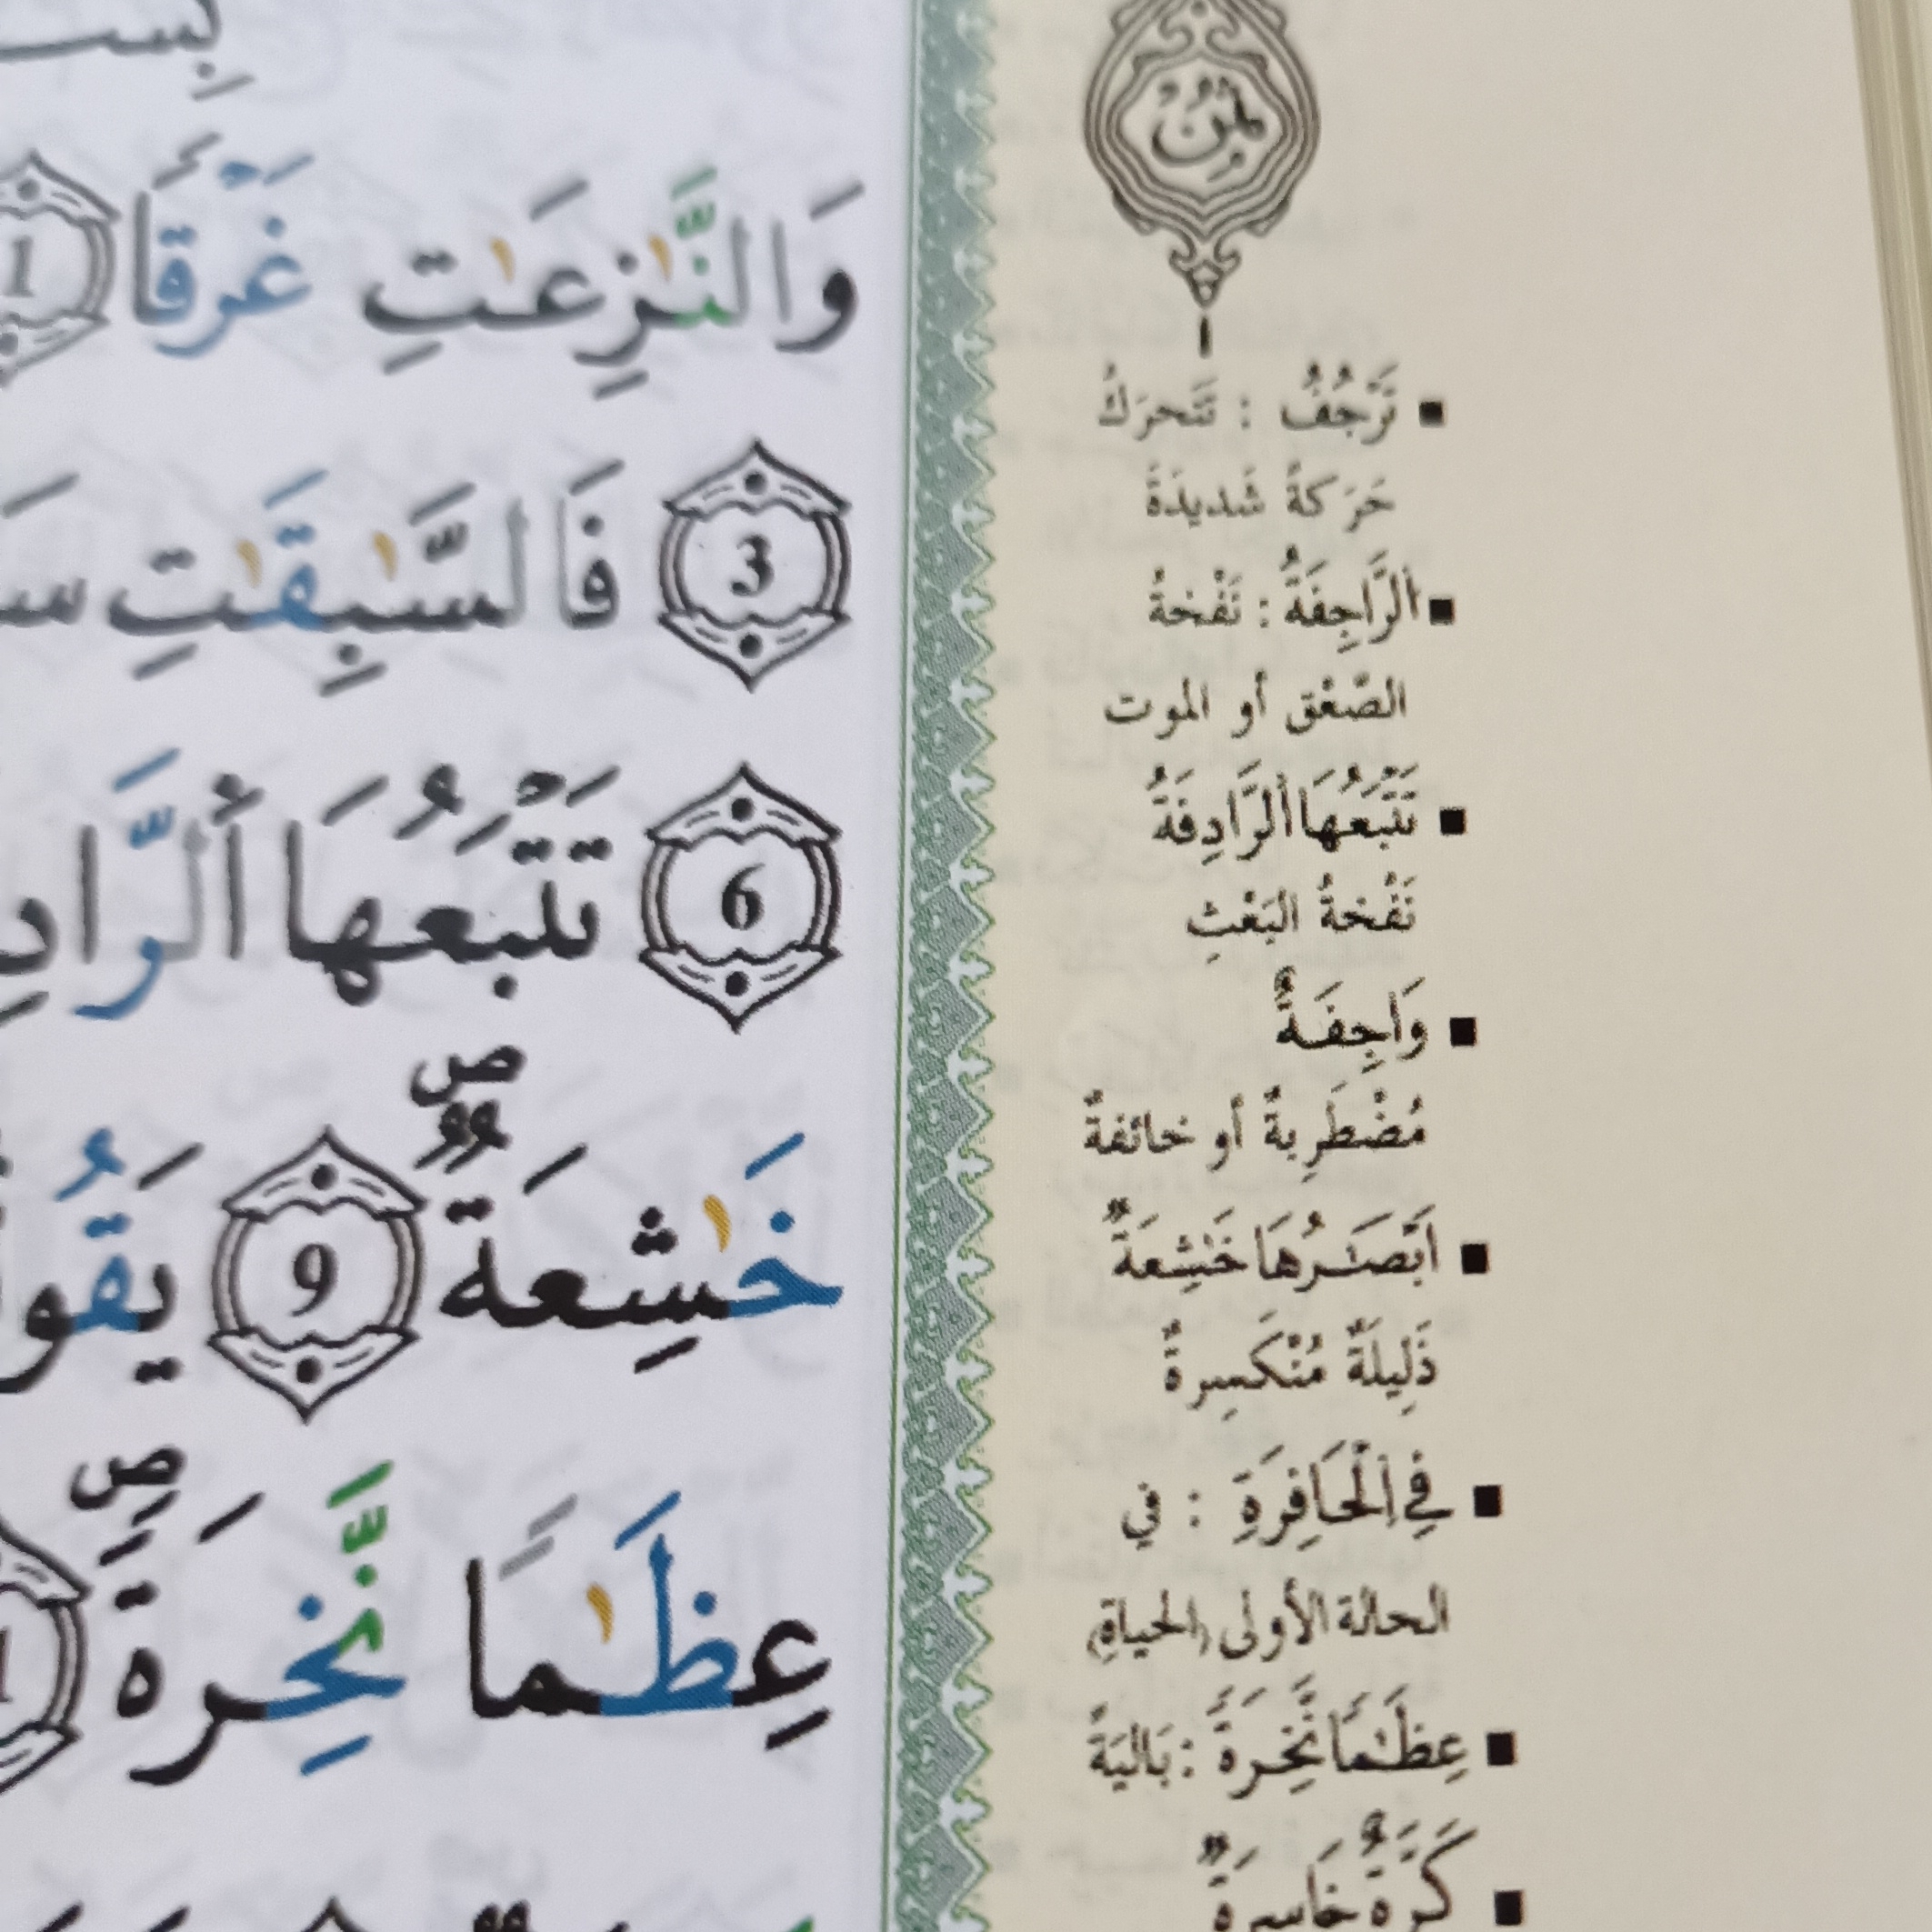 وَالنَّٰزِعَٰتِ غَرْقًا 1
3 فَالسَّٰبِقَٰتِ
6 تَتْبَعُهَا اَ۬لرَّادِ
خَٰشِعَةٞۖ 9 يَقُو
عِظَٰمًا نَّخِرَةٗۖ
ثمن
1
■ تَرْجُفُ : تَتَحرَكُ
حَرَكةً شَديدَةً
■ اَ۬لرَّاجِفَةُ : نَفْخةُ
الصَّعْق أو الموت
■ تَتْبَعُهَا اَ۬لرَّادِفَةُ
نَفْخةُ البَعْثِ
■ وَاجِفَةٌ
مُضْطَرِبةٌ أو خائفةٌ
■ أَبْصَٰرُهَا خَٰشِعَةٞ
ذَلِيلَةٌ مُنْكَسِرةٌ
■ فِے اِ۬لْحَافِرَةِ : في
الحالة الأولى (الحياةِ)
■ عِظَٰمًا نَّخِرَةٗ : بَاليَةً
■ كَرَّةٌ خَاسِرَةٞ